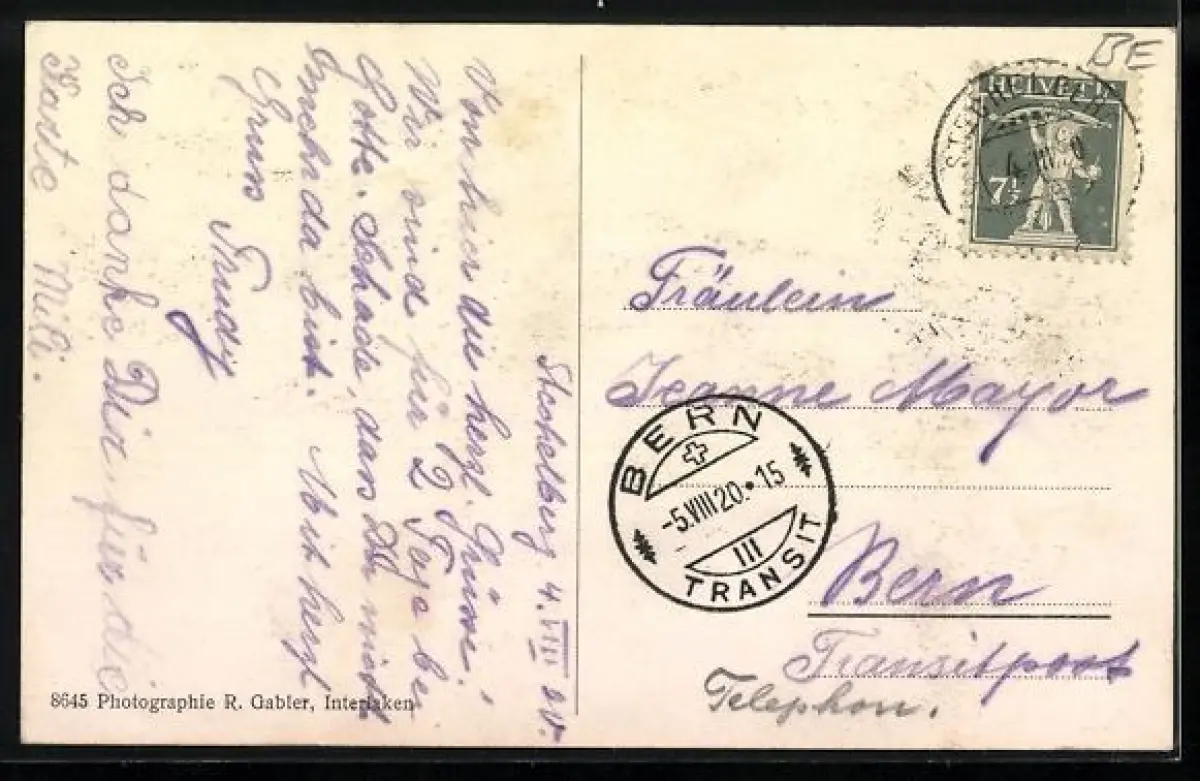 Stechelberg, 4. VIII 20.
Von hier die herzl. Grüsse!
Wir sind für 2 Tage bei
Gotte. Schade, dass Du nicht
auch da bist. Mit herzl
Gruss Trudy
Ich danke Dir für die
Karte Milli.
8645 Photographie R. Gabler, Interlaken
BE
HELVETIA
7½
STECHELBERG
4. VIII. 20
Fräulein
Jeanne Mayor
BERN
-5.VIII20.•15
III
TRANSIT
Bern
Transitpost
Telephon.